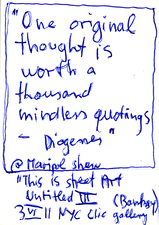 "One original
thought is
worth a
thousand
mindless quotings
- Diogenes"
@ Maripol show
"This is street Art
Untitled III (Banksy)
3 VI 11 NYC Clic gallery